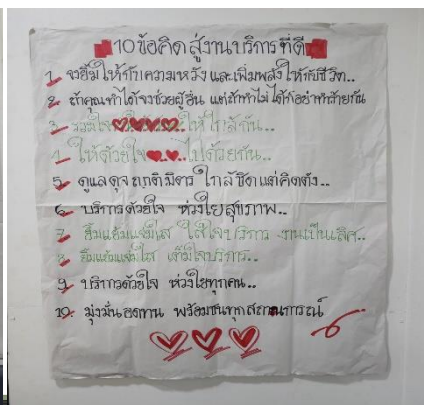 10ข้อคิด สู่งานบริการที่ดี
1. จงยิ้มให้กับความหวัง และเพิ่มพลังให้กับชีวิต..
2. ถ้าคุณทำได้จงช่วยผู้อื่น แต่ถ้าทำไม่ได้ก็อย่าทำร้ายกัน
3. รวมใจ ให้ใกล้กัน..
4. ให้ด้วยใจ ..ไปด้วยกัน..
5. ดูแลดุจญาติมิตร ใกล้ชิด
6. บริการด้วยใจ ห่วงใยสุขภาพ..
7. ยิ้มแย้มแจ่มใส ใส่ใจบริการ งานเป็นเลิศ..
8. ยิ้มแย้มแจ่มใส เต็มใจบริการ..
9. บริการด้วยใจ ห่วงใยทุกคน..
10. มุ่งมั่นอดทน พร้อมชนทุกสถานการณ์